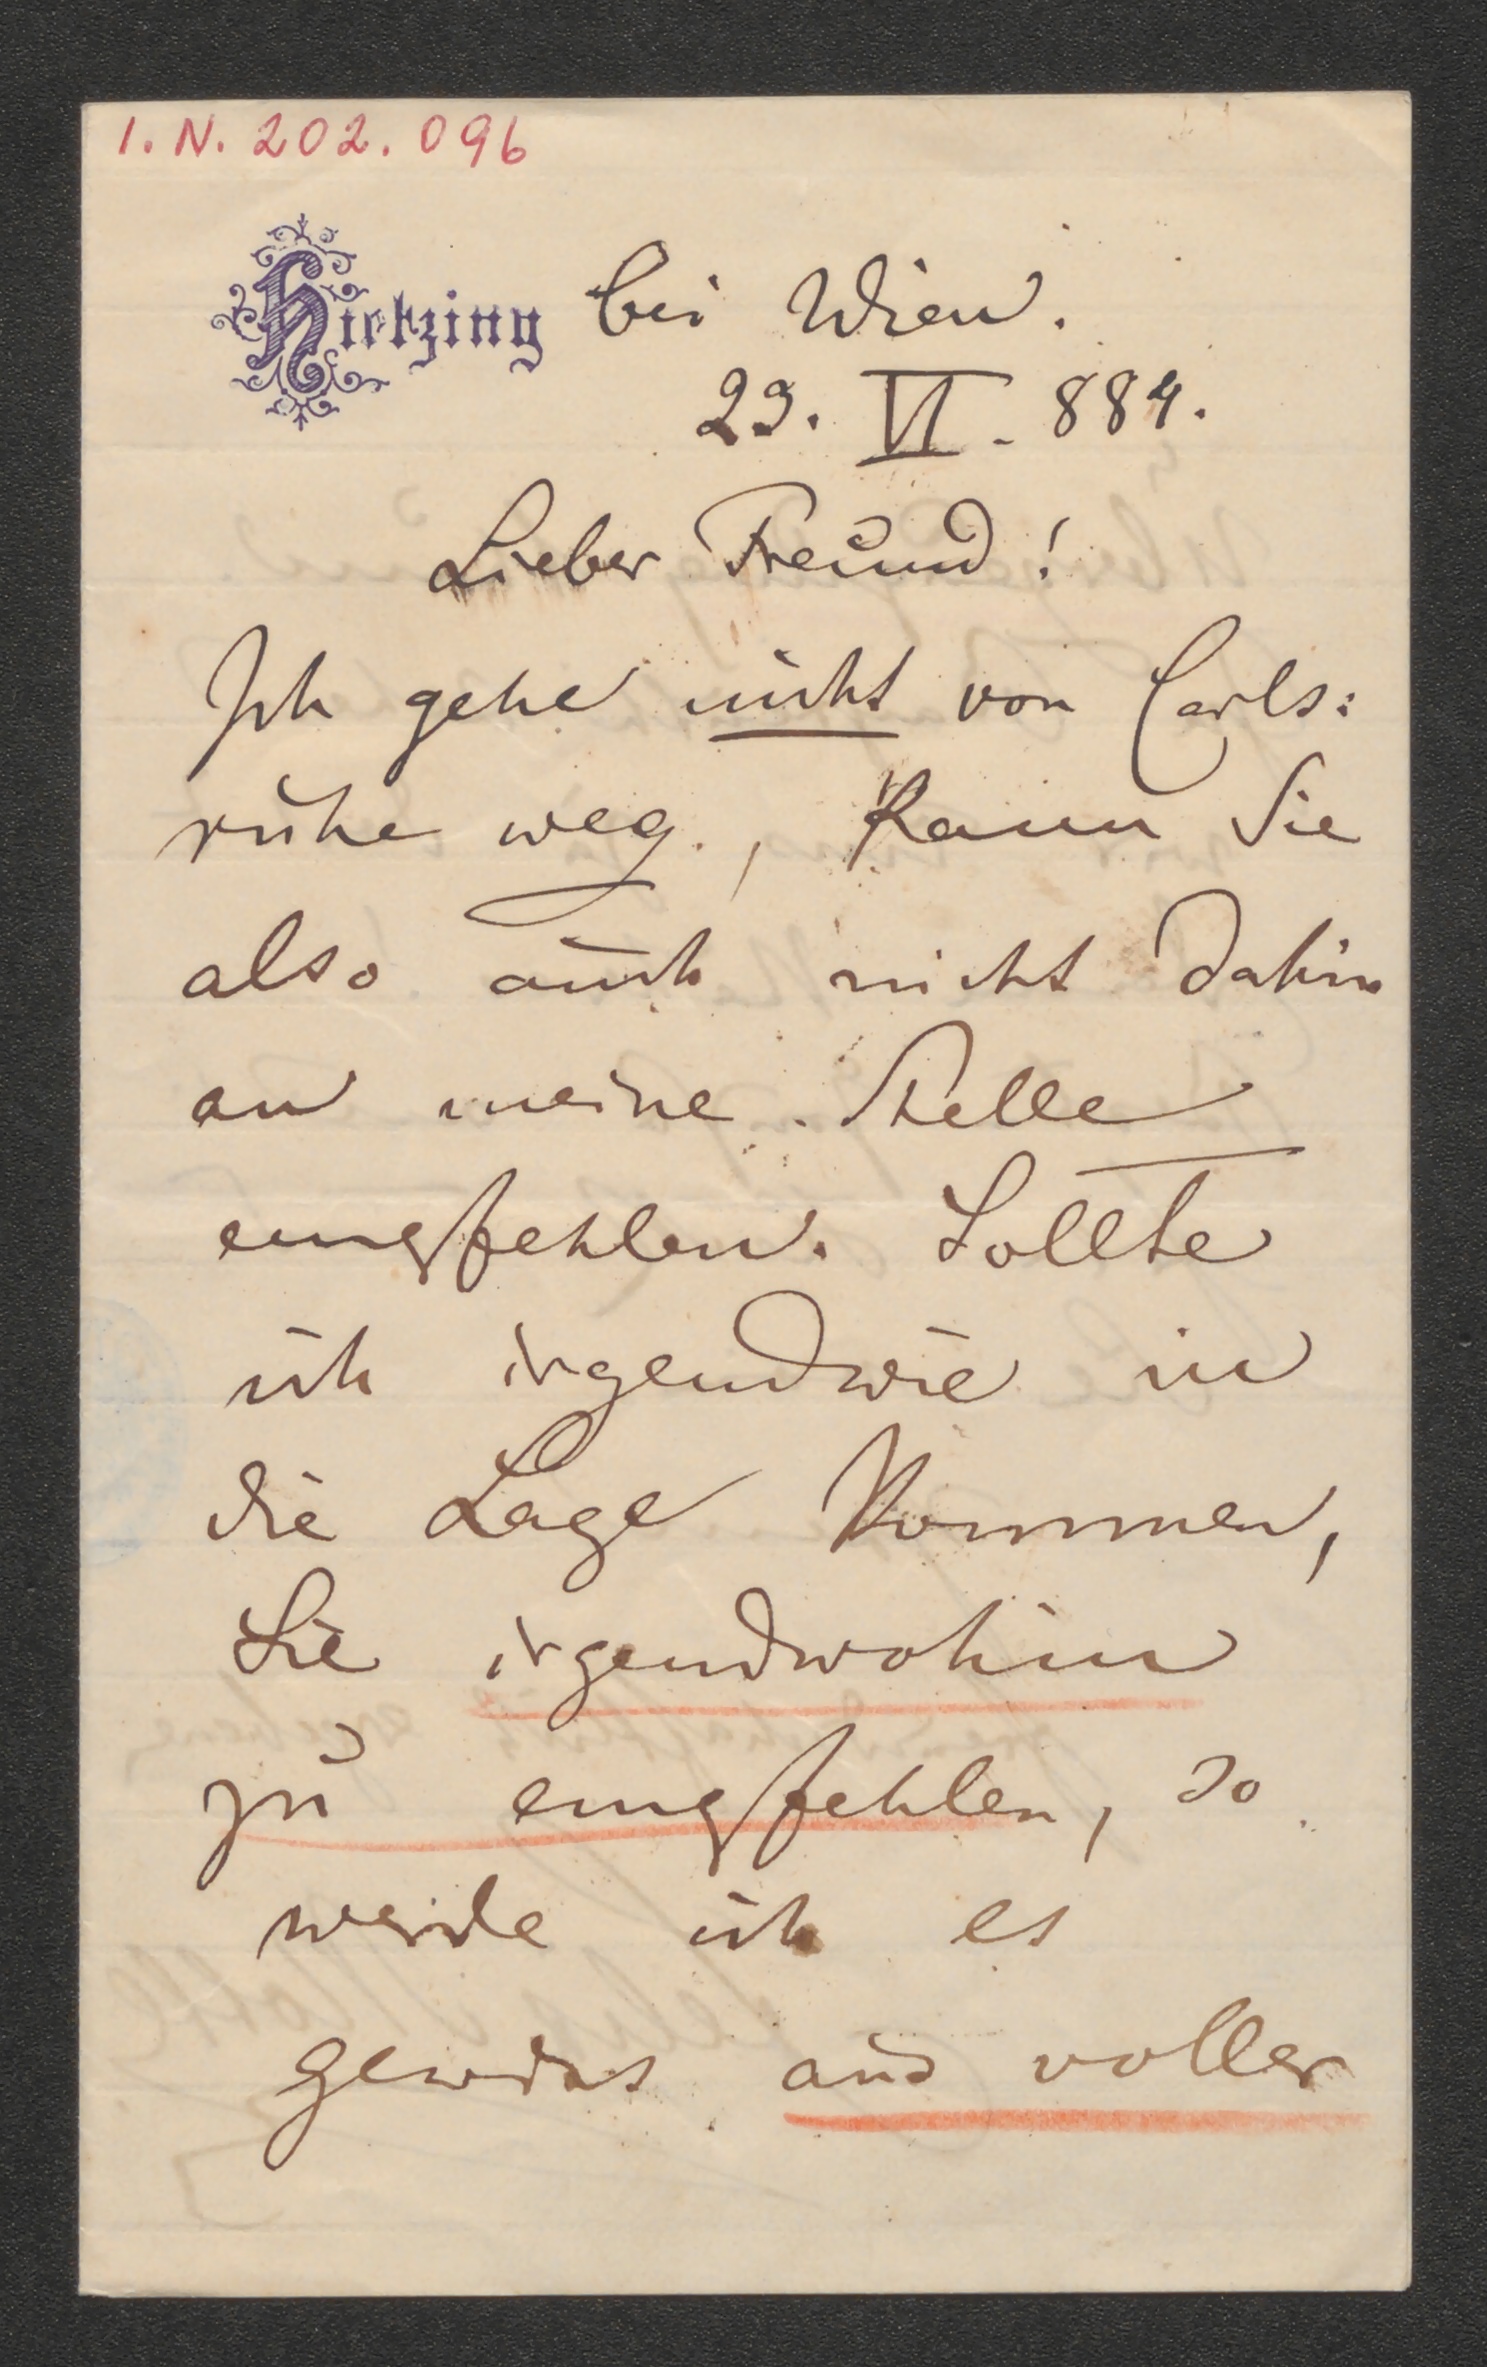 I. N. 202.096
Hietzing bei Wien.
29. VI. 884.
Lieber Freund!
Ich gehe nicht von Carls:
ruhe weg., Kann Sie
also auch nicht dahin
an meine Stelle
empfehlen. Sollte
ich irgendwie in
die Lage kommen,
Sie irgendwohin
zu empfehlen, so
werde ich es
gewiss aus voller